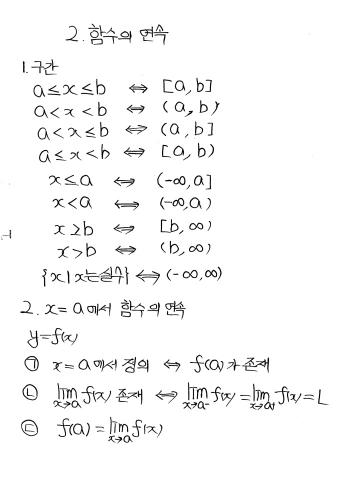 2. 함수의 연속
1. 구간
a≤x≤b ⇔ [a, b]
a<x<b ⇔ (a, b)
a<x≤b ⇔ (a, b]
a≤x<b ⇔ [a, b)
x≤a ⇔ (-∞, a]
x<a ⇔ (-∞, a)
x≥b ⇔ [b, ∞)
x>b ⇔ (b, ∞)
{x|x는 실수} ⇔ (-∞, ∞)
2. x=a에서 함수의 연속
y=f(x)
㉠ x=a에서 정의 ⇔ f(a)가 존재
㉡ lim x→a f(x) 존재 ⇔ lim x→a- f(x) = lim x→a+ f(x) = L
㉢ f(a) = lim x→a f(x)